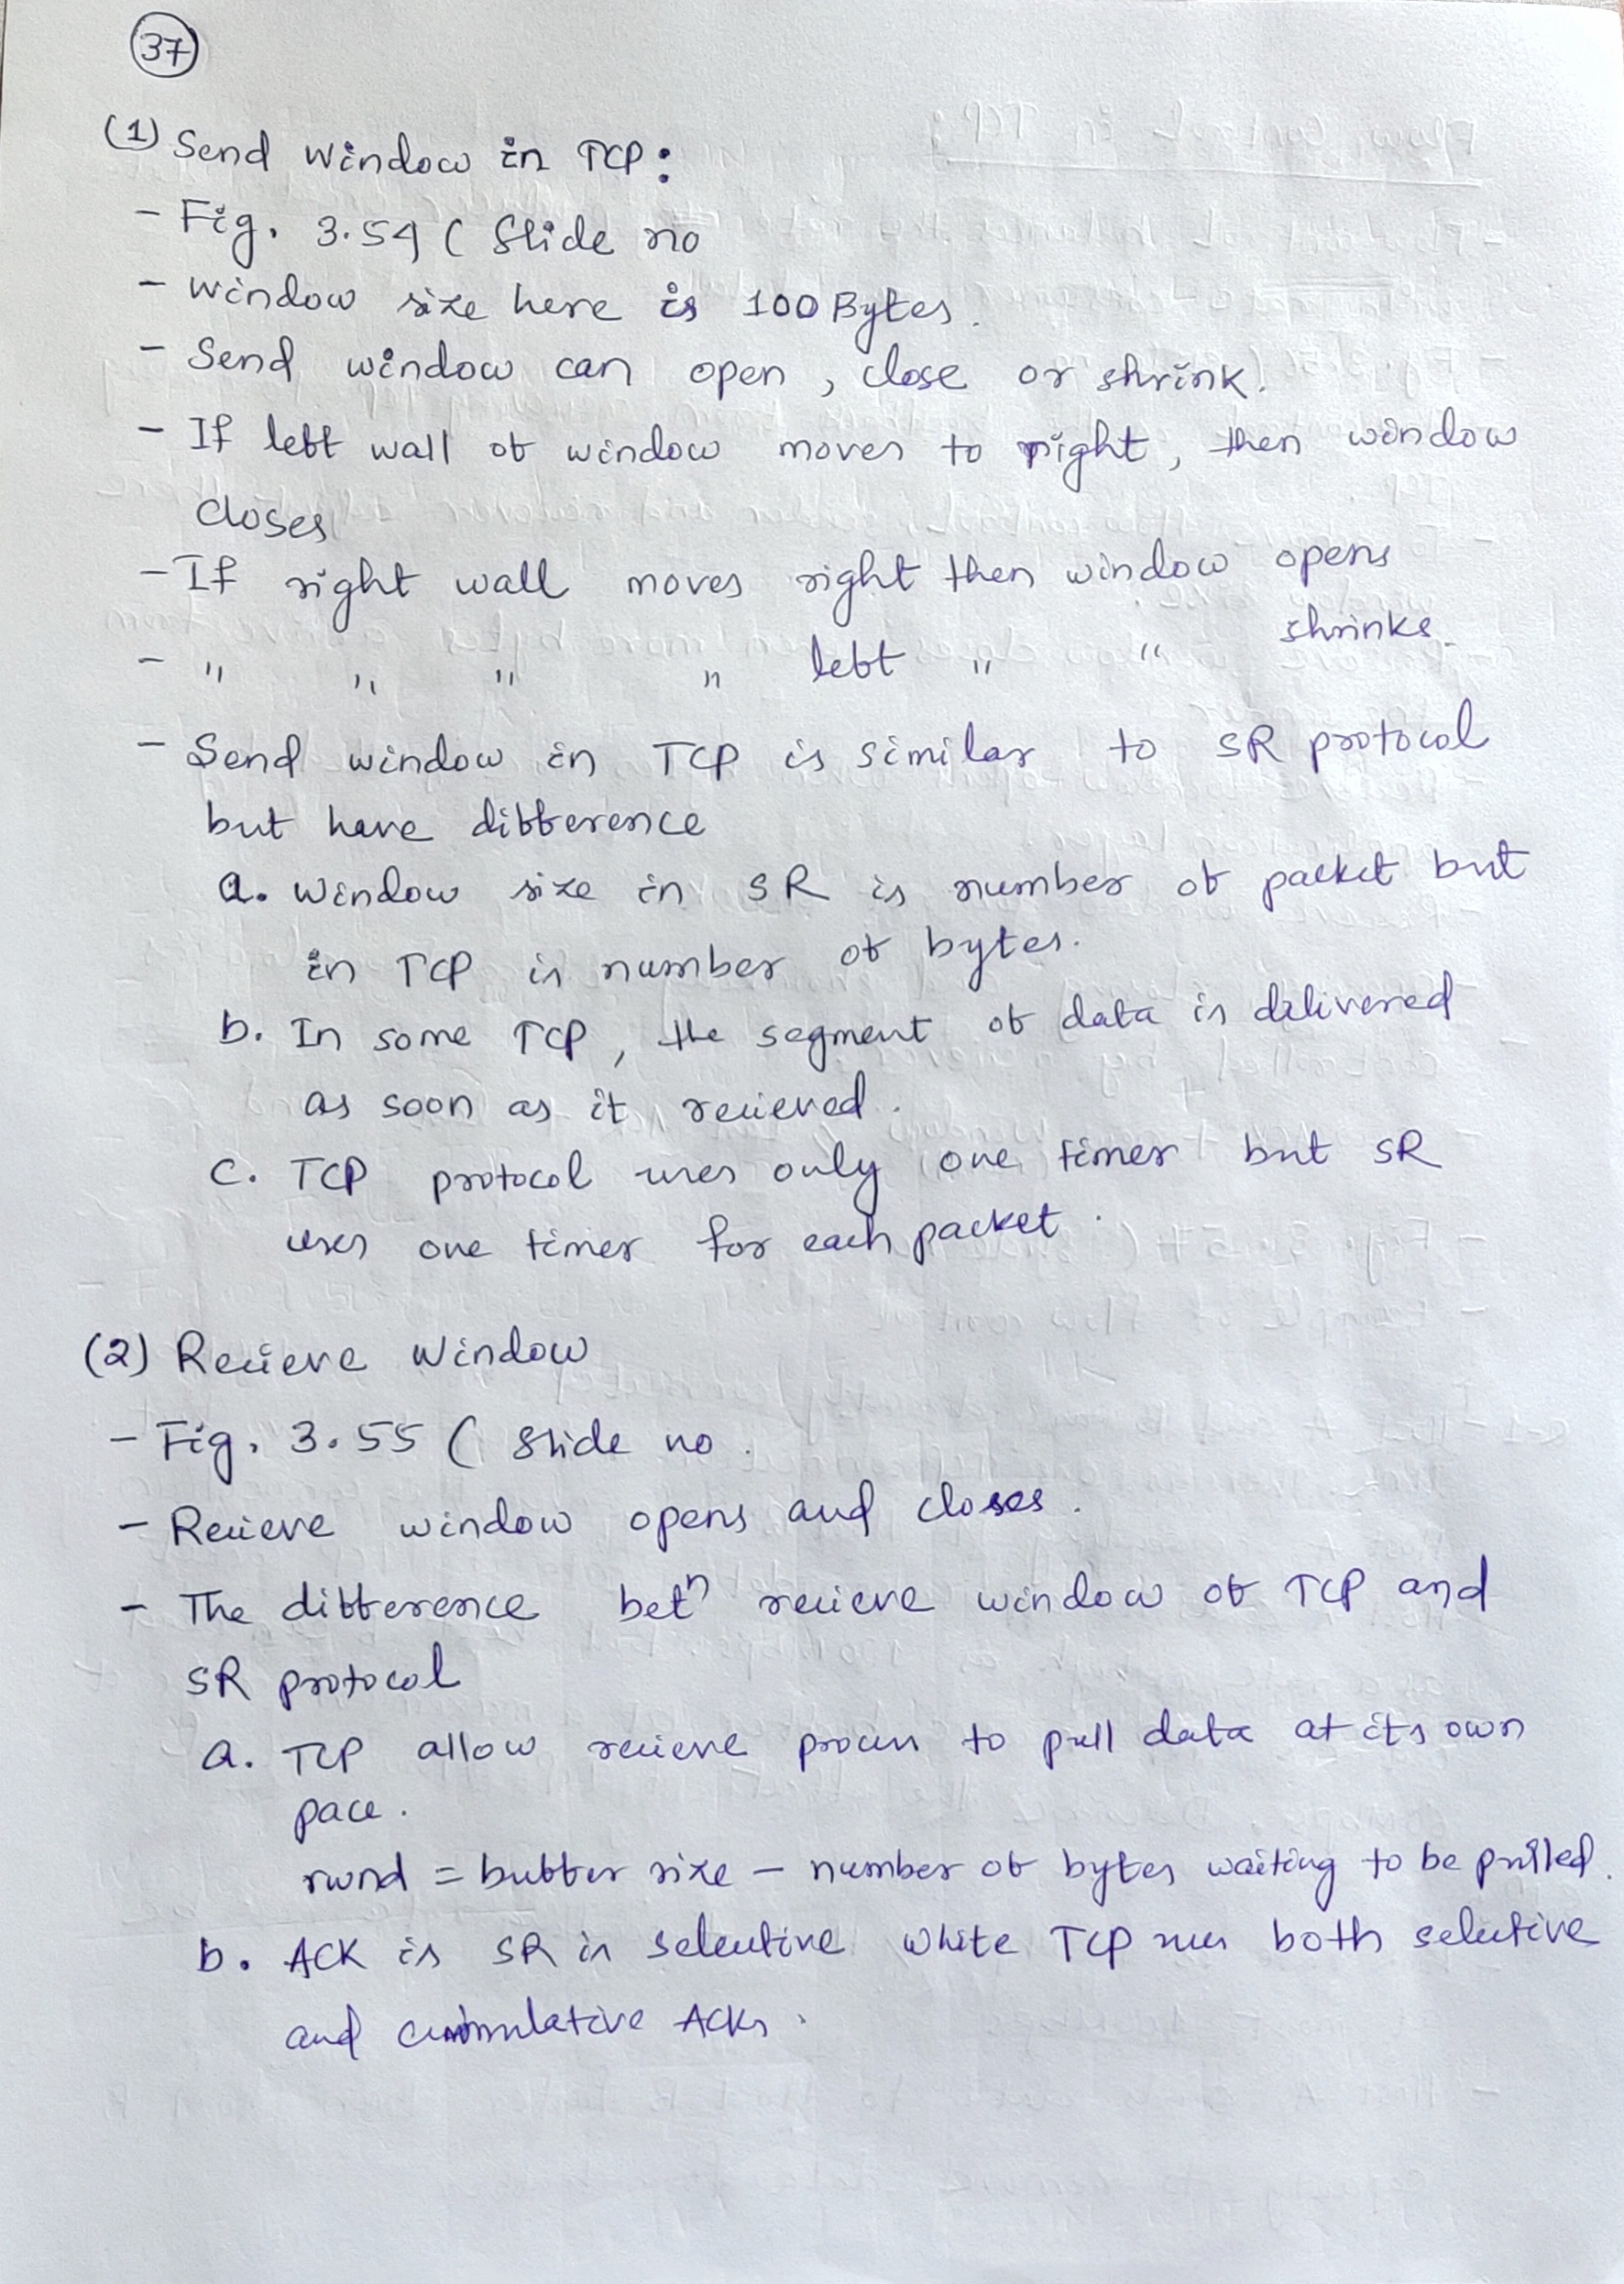 37
(1) Send window in TCP:
- Fig. 3.54 ( Slide no
- window size here is 100 Bytes.
- Send window can open, close or shrink.
- If left wall of window moves to right, then window
closes
- If right wall moves right then window opens
- " " " " left " " shrinks
- Send window in TCP is similar to SR protocol
but have difference
a. window size in SR is number of packet but
in TCP is number of bytes.
b. In some TCP, the segment of data is delivered
as soon as it recieved.
c. TCP protocol uses only one timer but SR
uses one timer for each packet.
(2) Recieve Window
- Fig. 3.55 ( Slide no.
- Recieve window opens and closes.
- The difference betn recieve window of TCP and
SR protocol
a. TCP allow recieve process to pull data at its own
pace.
rwnd = buffer size - number of bytes waiting to be pulled.
b. ACK is SR is selective while TCP uses both selective
and cummulative ACKs.